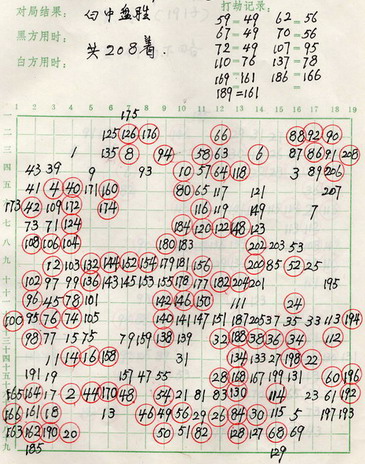 对局结果: 白中盘胜
黑方用时:
共208着.
白方用时:
打劫记录:
59=49 62=56
67=49 70=56
72=49 107=95
110=76 137=78
169=161 186=166
189=161
1 2 3 4 5 6 7 8 9 10 11 12 13 14 15 16 17 18 19
175
125 126 176 66 88 92 90
1 135 8 94 58 63 6 87 86 91 208
43 39 9 93 10 57 64 118 3 89 206
41 4 40 171 160 80 65 117 121 207
173 42 109 172 174 116 119 149 7
73 71 124 184 120 122 148 123
108 106 104 180 183 202 203 53
12 103 132 144 152 154 179 181 156 200 85 52 25
102 97 99 136 143 145 153 155 178 177 182 204 201 195
96 45 78 101 142 146 150 111 24
100 95 76 74 105 140 141 147 151 187 205 37 35 33 113 194
98 77 15 75 79 159 138 139 32 188 38 36 34 112
11 14 16 158 31 134 133 27 198 22
191 19 157 47 55 28 168 167 199 131 60 196
165 164 17 2 44 170 48 54 21 81 83 130 114 23 61 192
166 161 18 13 46 49 56 29 26 84 30 115 5 197 193
163 162 190 20 50 51 82 128 127 68 69
185 129